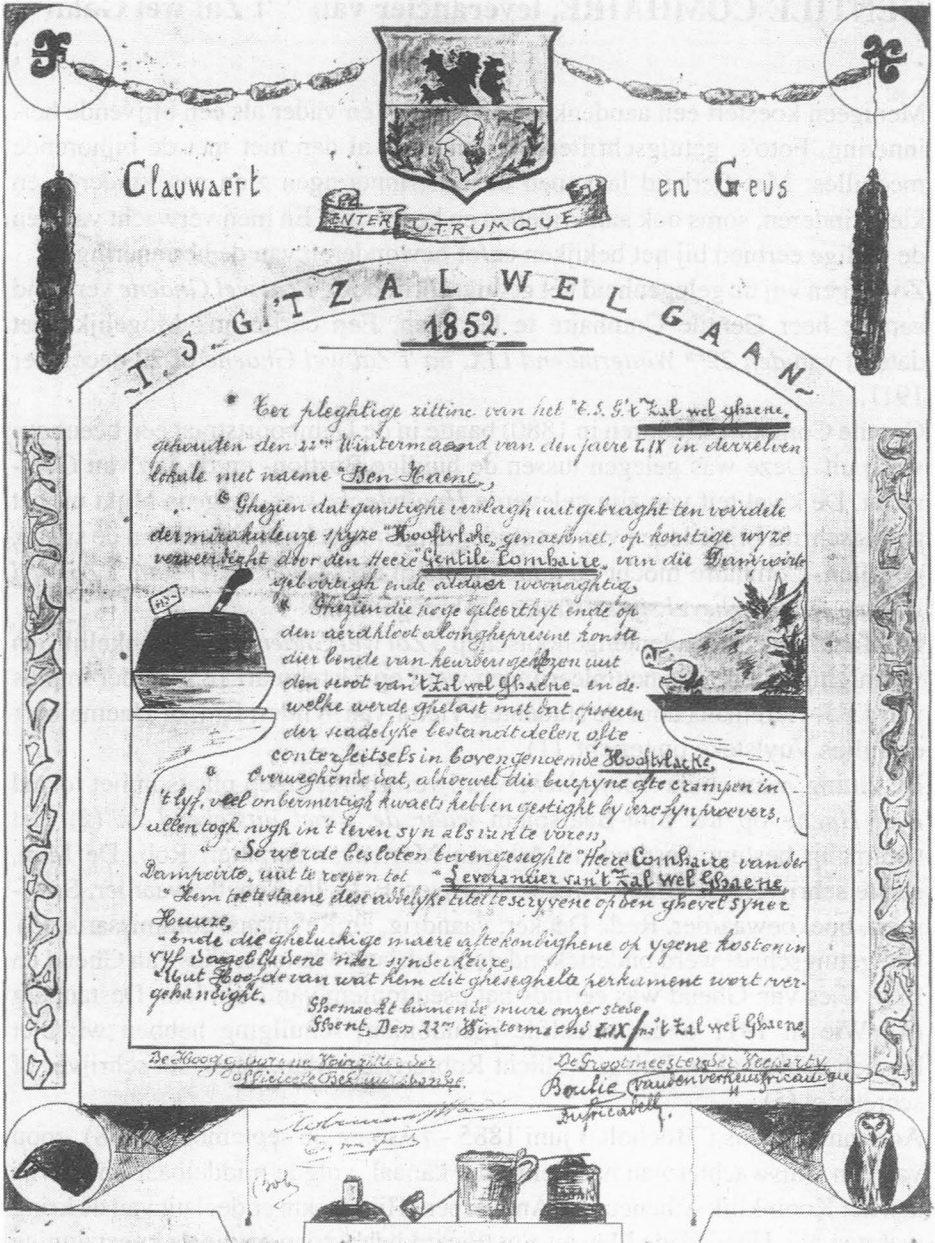 Clauwaert en Geus
INTER UTRUMQUE
TSGTZAL WELGAAN
1852
Ter pleghtige zittinc van het "T.S.G. 't Zal wel ghaene,
gehouden den 22sten Wintermaand van den jaire LIX in derzelven
lokale met naeme Ben Haeni,
Ghezien dat gunstighe verslagh uutgebraght ten voirdele
der mirakuleuze spyze "Hooftvlake, genaehmet, op konstige wyze
verveerdight door den Heere "Gentile Combaire, van die Dampoirte
geboirtigh ende aldaer woonaghtig,
Ghezien die hoge geleerthyt ende op
den aerdkloot alomghepresene konste
dier bende van keurders gekozen uut
den Groot van 't Zal wel Ghaene, en de
welke werde ghelast met hat opseuen
der scadelyke bestandtdelen ofte
conterfeitsels in bovengenoemde Hooftvlacke,
Overweghende dat, alhoewel die buucpyne ofte crampen in
't lyf, veel onbermertigh kwaets hebben gestight by ere synproevers,
allen togh nogh in 't leven syn als van te voren,
So werde besloten bovengeseghte "Heere Combaire van der
Dampoirte, uut te roepen tot "Leverancier van 't Zal wel Ghaene,
Hem toelaetene dese adelyke titel te scryvene op den ghevel syner
Huuze,
Ende die gheluckige maere aftekondighene op ygene kosten in
vyf dagebladene naer synder keure,
Uut Hoofde van wat hem dit ghesegheld perkament wort ver-
gehanlight.
Ghemaeckt binnen de mure onzer stede
Ghent, Den 22sten Wintermaend LIX/ in 't Zal wel Ghaene,
De Hooggeboirene Voirzitter der
Officieele Bestuursbende
De Grootmeesters der Keewarty
Boulie